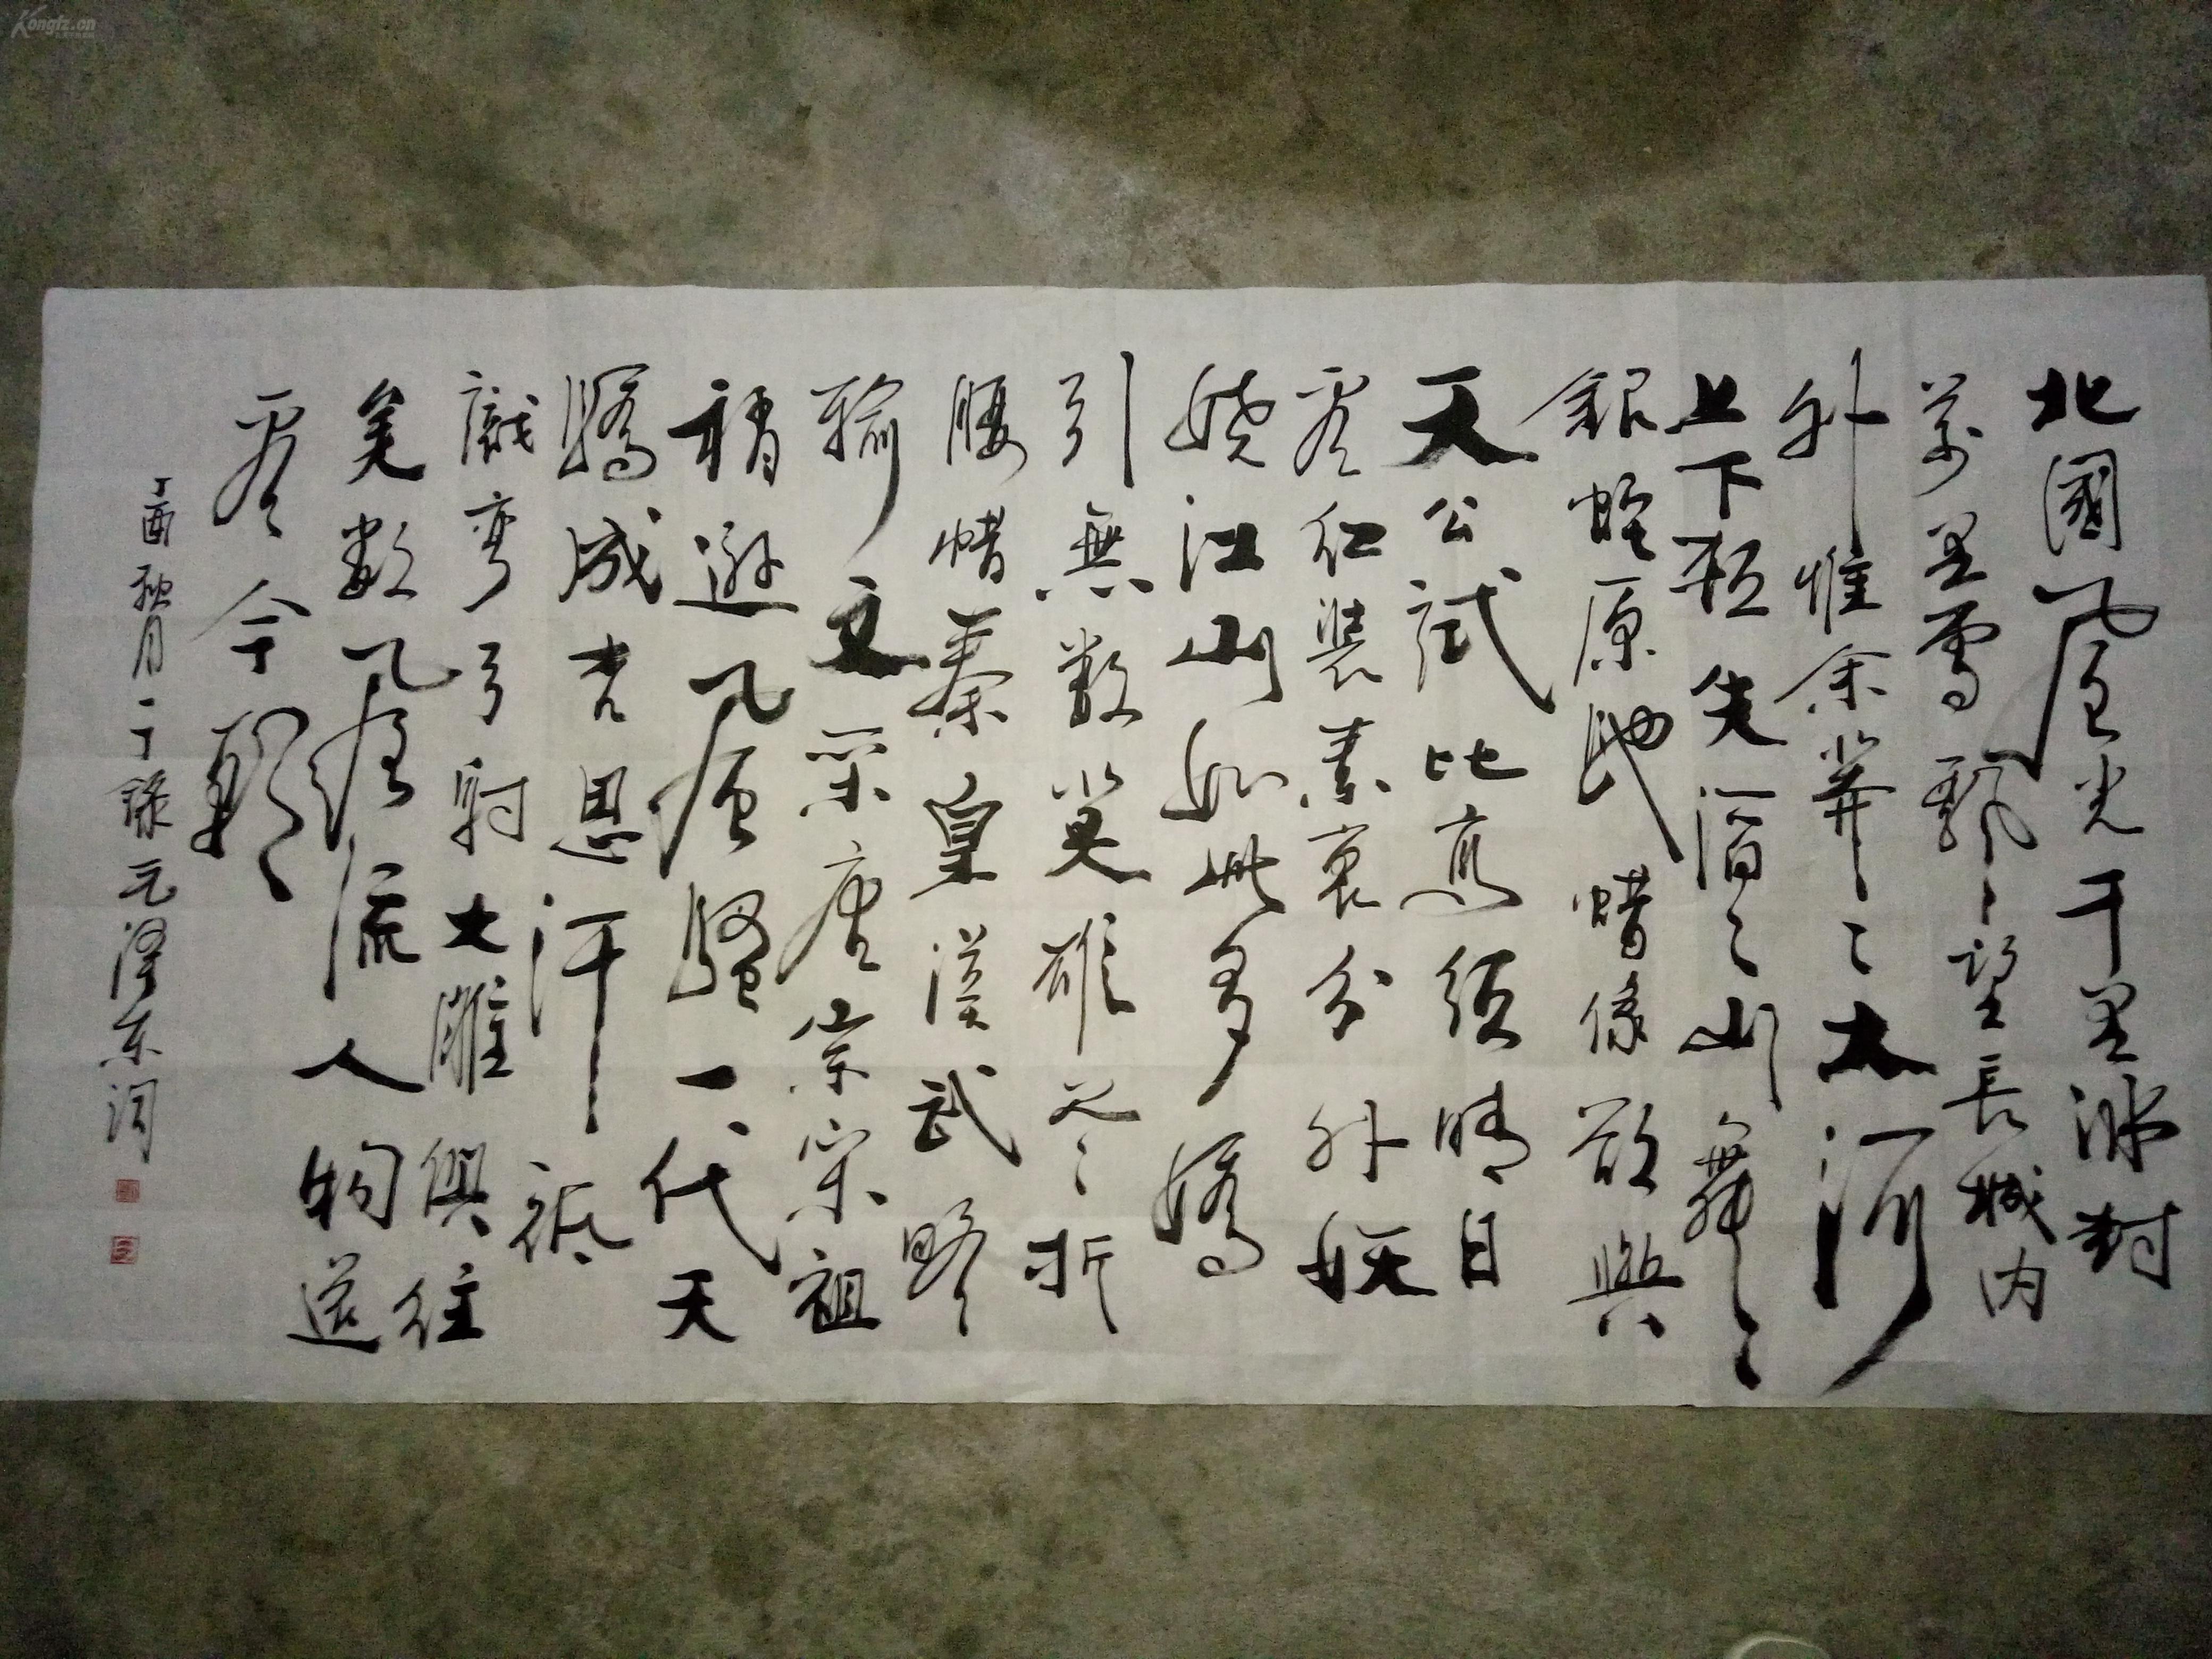 北國風光千里冰封
萬里雪飄望長城内
外惟余莽々大河
上下頓失滔々山舞
銀蛇原馳蜡像欲與
天公試比高須晴日
看红装素裹分外妖
娆江山如此多嬌
引無數英雄尽折
腰惜秦皇漢武略
输文采唐宗宋祖
稍遜風騷一代天
驕成吉思汗祇
識弯弓射大雕俱往
矣数風流人物還
看今朝
丁酉秋月一丁錄毛泽东词
Kongfz.cn